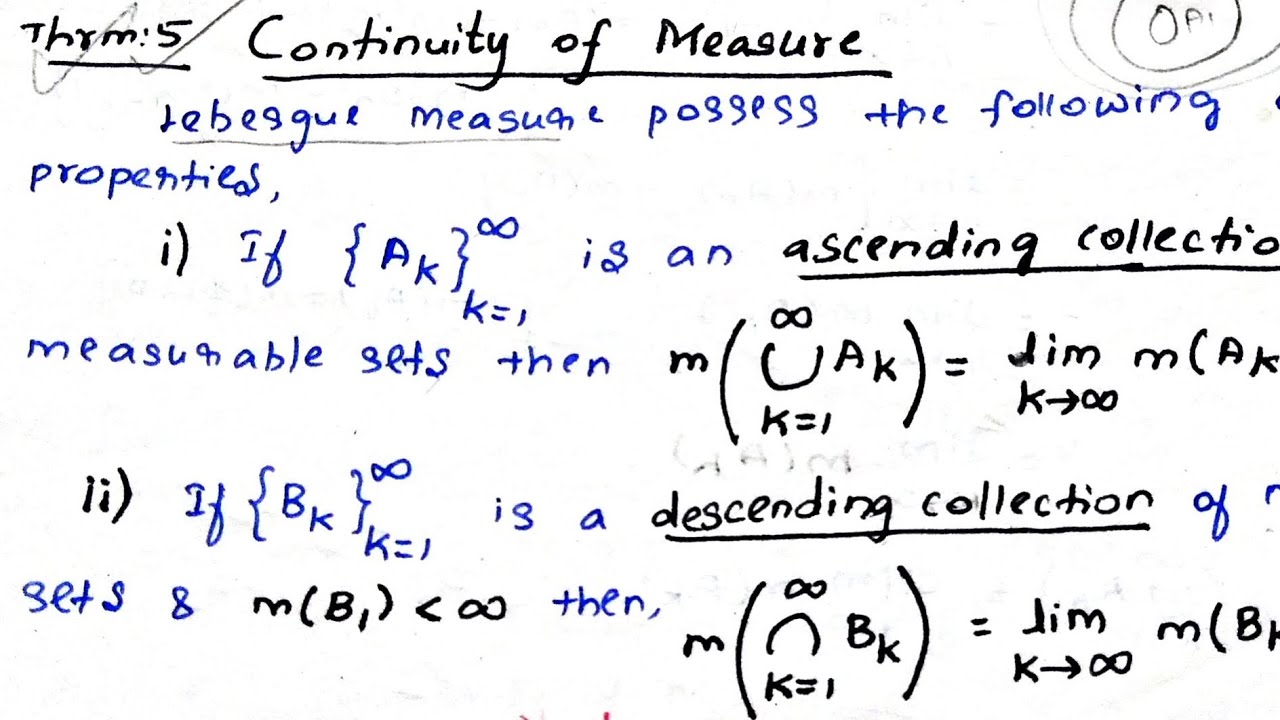 Thrm:5 Continuity of Measure
Lebesgue measure possess the following
properties,
i) If {A_k}_{k=1}^∞ is an ascending collectio
measurable sets then m(⋃_{k=1}^∞ A_k) = lim_{k→∞} m(A_k
ii) If {B_k}_{k=1}^∞ is a descending collection of
sets & m(B_1) < ∞ then,
m(⋂_{k=1}^∞ B_k) = lim_{k→∞} m(B_k